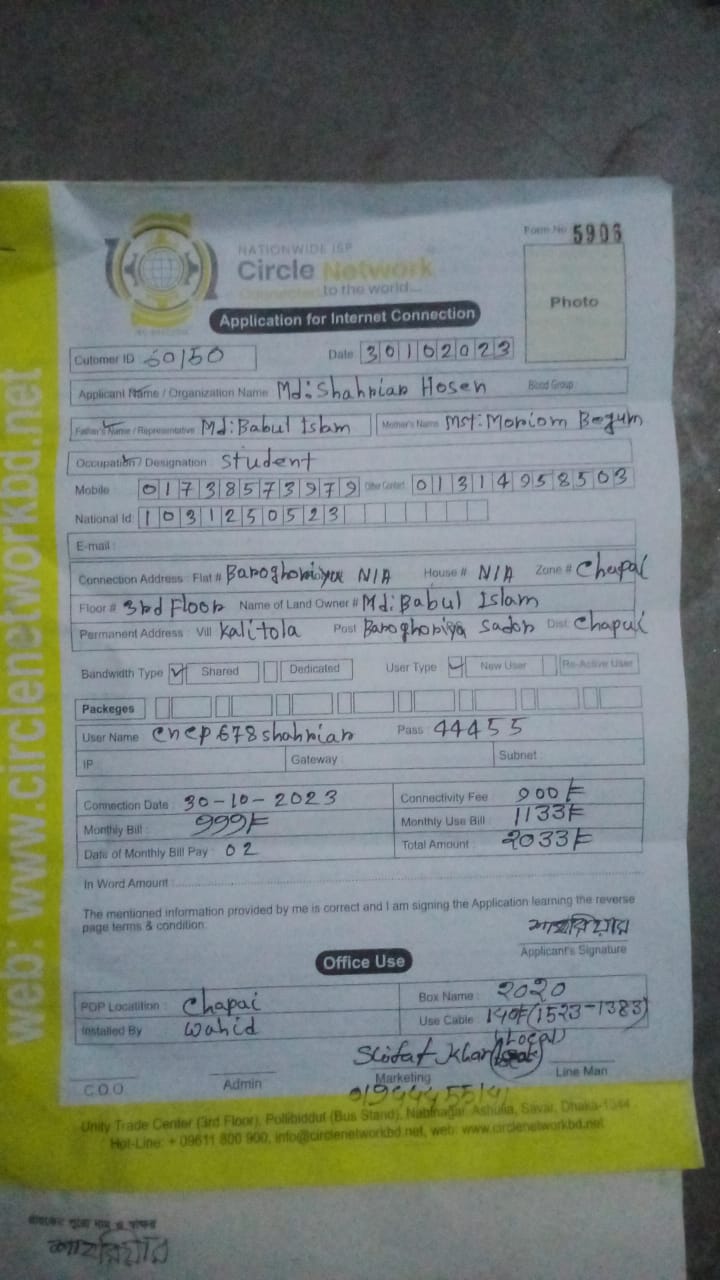 Form No 5906
NATIONWIDE ISP
Circle Network
Connected to the world...
Application for Internet Connection
Photo
Cutomer ID 60150 Date 30102023
Applicant Name / Organization Name Md:Shahriar Hosen Blood Group
Father's Name / Representative Md:Babul Islam Mother's Name Mst:Moriom Begum
Occupation / Designation : Student
Mobile 01738573979 Other Contact 01314958503
National Id: 1031250523
E-mail :
Connection Address : Flat # Baroghoriya N/A House # N/A Zone # Chapai
Floor # 3rd Floor Name of Land Owner # Md:Babul Islam
Permanent Address : Vill Kalitola Post Baroghoriya Sador Dist Chapai
Bandwidth Type Shared Dedicated User Type New User Re-Active User
Packeges
User Name cncp678shahriar Pass : 44455
IP : Gateway : Subnet :
Connection Date : 30-10-2023 Connectivity Fee 900/=
Monthly Bill : 999/= Monthly Use Bill : 1133/=
Date of Monthly Bill Pay : 02 Total Amount : 2033/=
In Word Amount :
The mentioned information provided by me is correct and I am signing the Application learning the reverse
page terms & condition.
শাহরিয়ার
Applicant's Signature
Office Use
POP Locatition : Chapai Box Name : 2020
Installed By Wahid Use Cable 140/=(1523-1383)
(Local)
Khan
C.O.O Admin Marketing Line Man
Unity Trade Center (3rd Floor), Pollibiddut (Bus Stand), Nabinagar, Ashulia, Savar, Dhaka-1344
Hot-Line: + 09611 800 900, info@circlenetworkbd.net, web: www.circlenetworkbd.net
web: www.circlenetworkbd.net
শাহরিয়ার